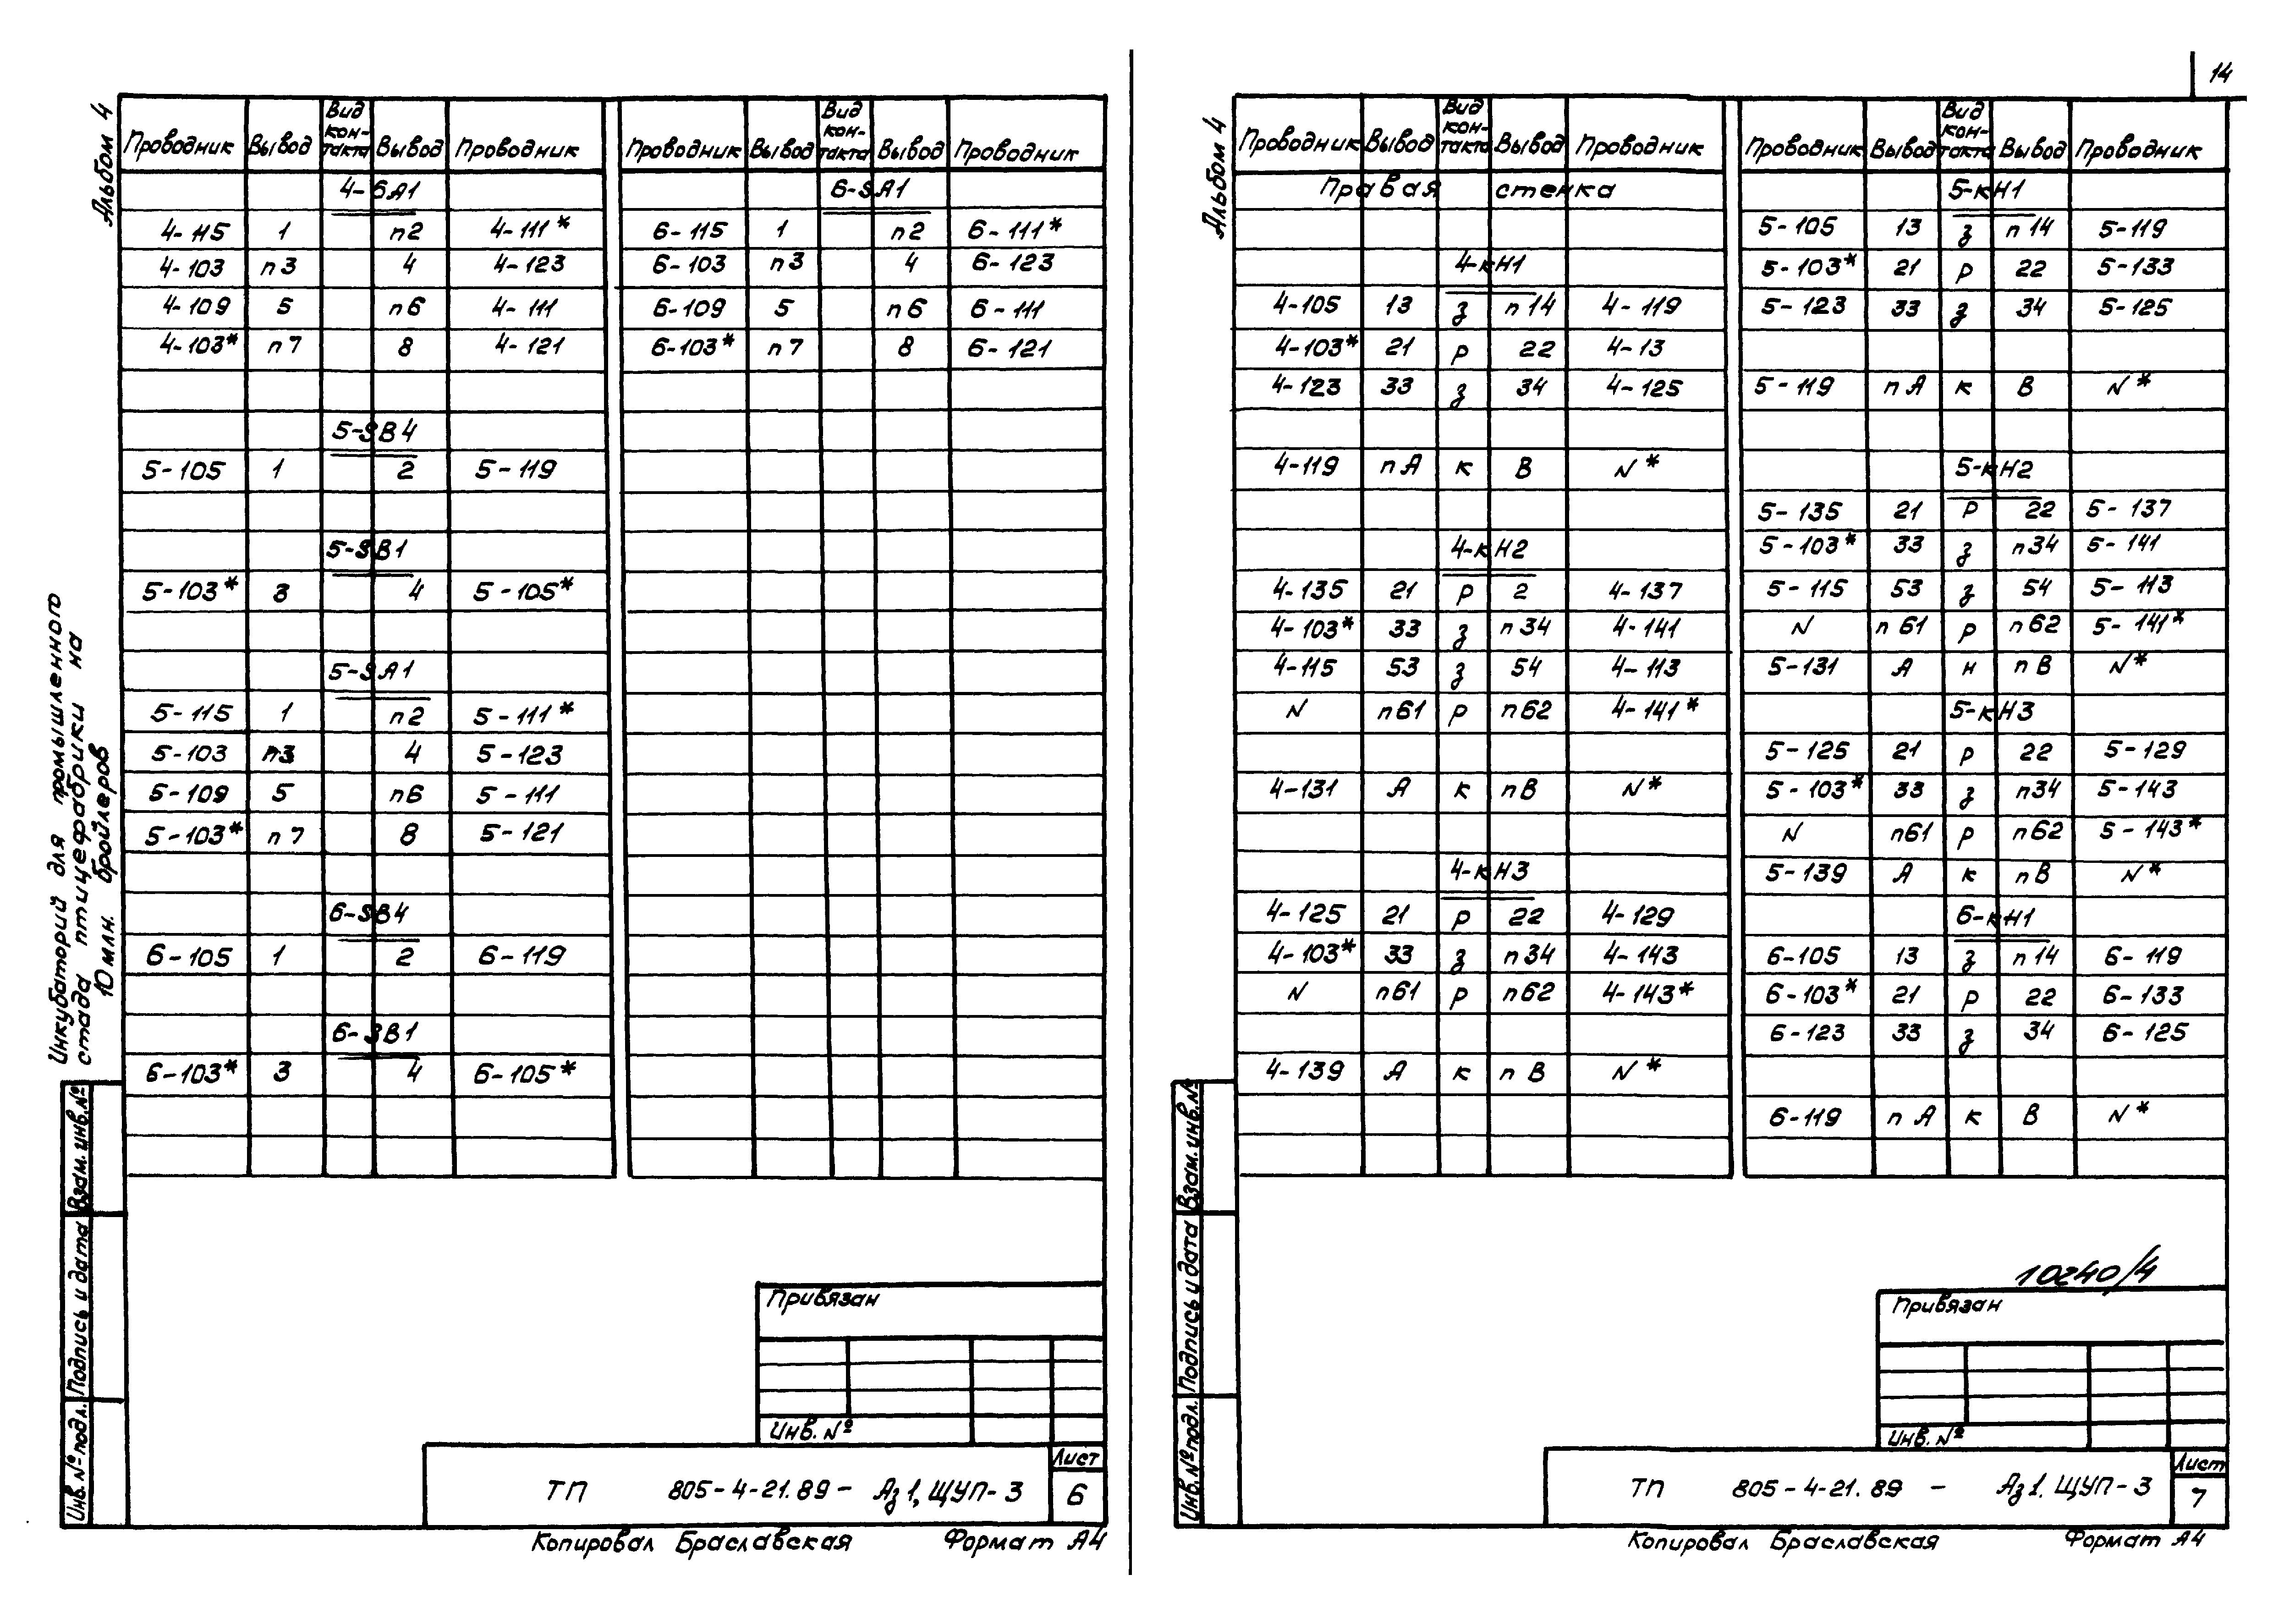 14
Альбом 4
Проводник Вывод Вид кон-такта Вывод Проводник
4-SA1
4-115 1 п2 4-111*
4-103 п3 4 4-123
4-109 5 п6 4-111
4-103* п7 8 4-121
5-SB4
5-105 1 2 5-119
5-SB1
5-103* 3 4 5-105*
5-SA1
5-115 1 п2 5-111*
5-103 п3 4 5-123
5-109 5 п6 5-111
5-103* п7 8 5-121
6-SB4
6-105 1 2 6-119
6-SB1
6-103* 3 4 6-105*
Проводник Вывод Вид кон-такта Вывод Проводник
6-SA1
6-115 1 п2 6-111*
6-103 п3 4 6-123
6-109 5 п6 6-111
6-103* п7 8 6-121
Инкубаторий для промышленного
стада птицефабрики на
10 млн. бройлеров
Взам. инв. №
Подпись и дата
Инв. № подл.
Привязан
Инв. №
ТП 805-4-21.89 - Аз1, ЩУП-3
Лист
6
Копировал Браславская Формат А4
Альбом 4
Проводник Вывод Вид кон-такта Вывод Проводник
Правая стенка
4-кН1
4-105 13 з п14 4-119
4-103* 21 р 22 4-13
4-123 33 з 34 4-125
4-119 пА к В N*
4-кН2
4-135 21 р 2 4-137
4-103* 33 з п34 4-141
4-115 53 з 54 4-113
N п61 р п62 4-141*
4-131 А к пВ N*
4-кН3
4-125 21 р 22 4-129
4-103* 33 з п34 4-143
N п61 р п62 4-143*
4-139 А к пВ N*
Проводник Вывод Вид кон-такта Вывод Проводник
5-кН1
5-105 13 з п14 5-119
5-103* 21 р 22 5-133
5-123 33 з 34 5-125
5-119 пА к В N*
5-кН2
5-135 21 р 22 5-137
5-103* 33 з п34 5-141
5-115 53 з 54 5-113
N п61 р п62 5-141*
5-131 А н пВ N*
5-кН3
5-125 21 р 22 5-129
5-103* 33 з п34 5-143
N п61 р п62 5-143*
5-139 А к пВ N*
6-кН1
6-105 13 з п14 6-119
6-103* 21 р 22 6-133
6-123 33 з 34 6-125
6-119 пА к В N*
Взам. инв. №
Подпись и дата
Инв. № подл.
10240/4
Привязан
Инв. №
ТП 805-4-21.89 - Аз1. ЩУП-3
Лист
7
Копировал Браславская Формат А4